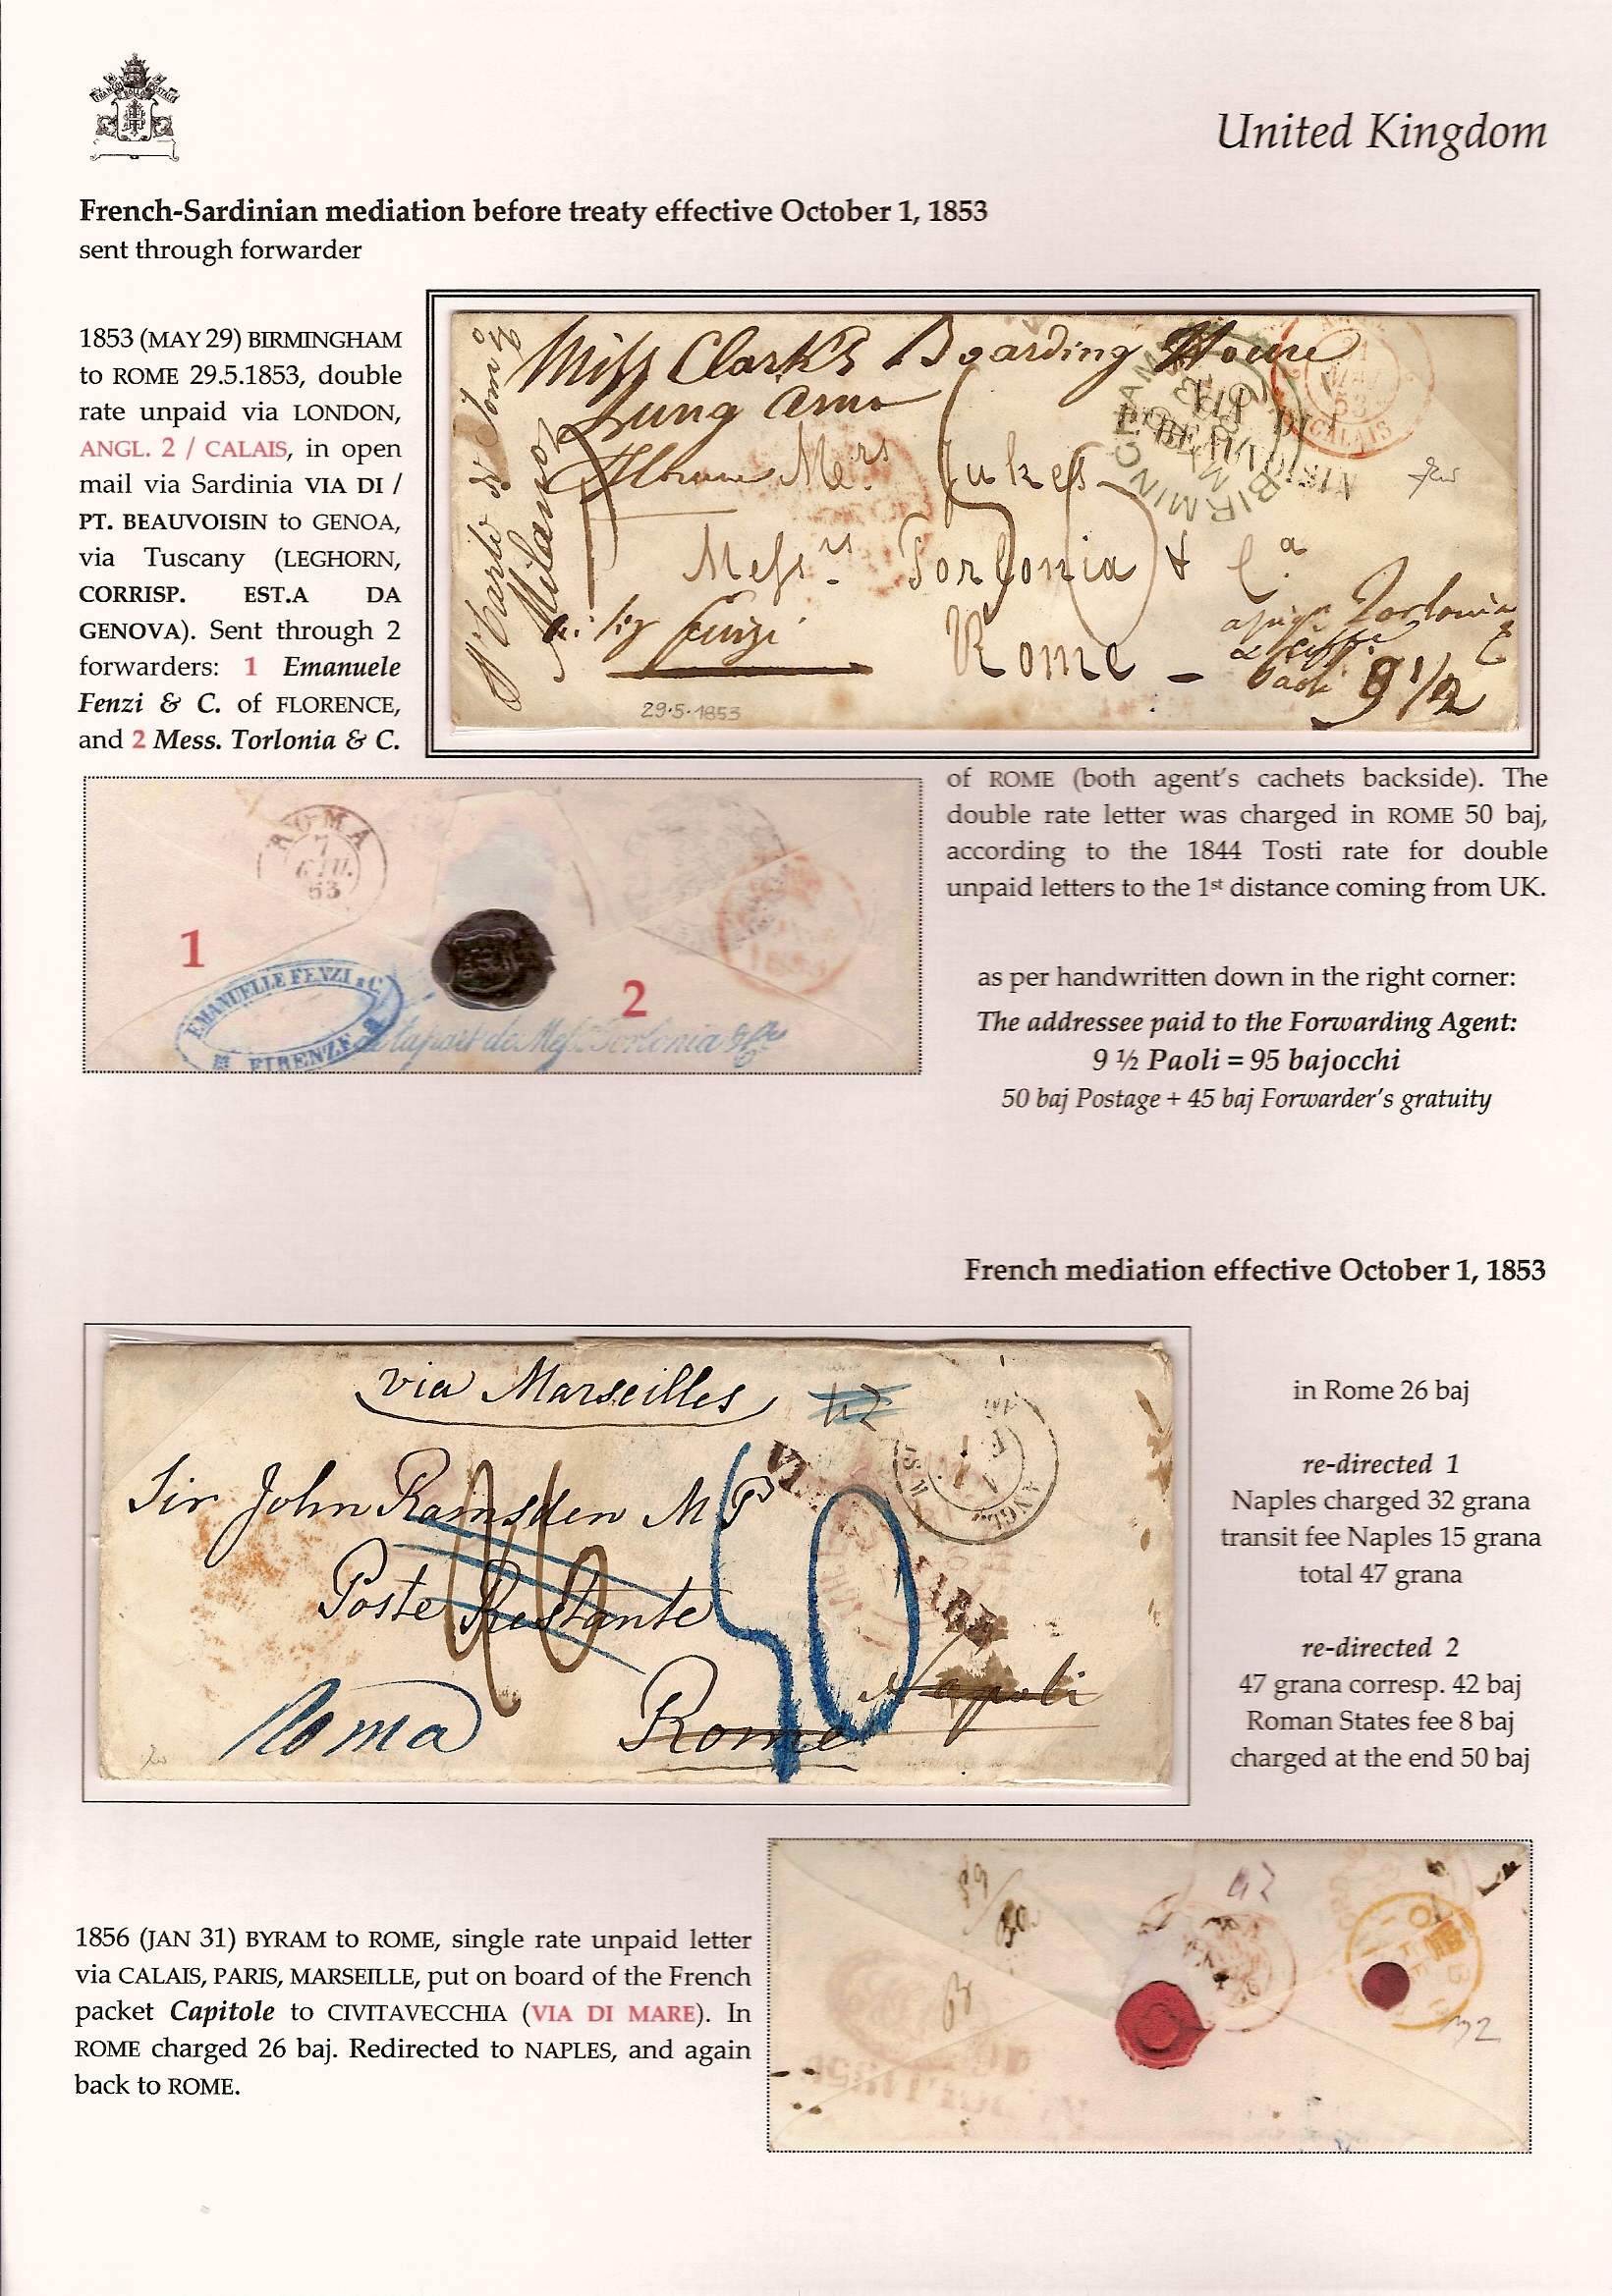 United Kingdom
French-Sardinian mediation before treaty effective October 1, 1853
sent through forwarder
1853 (MAY 29) BIRMINGHAM
to ROME 29.5.1853, double
rate unpaid via LONDON,
ANGL. 2 / CALAIS, in open
mail via Sardinia VIA DI /
PT. BEAUVOISIN to GENOA,
via Tuscany (LEGHORN,
CORRISP. EST.A DA
GENOVA). Sent through 2
forwarders: 1 Emanuele
Fenzi & C. of FLORENCE,
and 2 Mess. Torlonia & C.
Miss Clark's Boarding House
Lung Arno
Mrs Jukes
Messrs Torlonia & Ca
Rome
Milano
Fenzi
Torlonia
9 1/2
29·5·1853
BIRMINGHAM
CALAIS
of ROME (both agent's cachets backside). The
double rate letter was charged in ROME 50 baj,
according to the 1844 Tosti rate for double
unpaid letters to the 1st distance coming from UK.
ROMA
7
GIU.
53
1
2
EMANUELLE FENZI & C.
FIRENZE
de la part de Messrs Torlonia & Co
as per handwritten down in the right corner:
The addressee paid to the Forwarding Agent:
9 ½ Paoli = 95 bajocchi
50 baj Postage + 45 baj Forwarder's gratuity
French mediation effective October 1, 1853
via Marseilles
42
Sir John Ramsden MP
Poste Restante
Rome
Napoli
Roma
26
50
VIA
MARE
ANGL.
in Rome 26 baj
re-directed 1
Naples charged 32 grana
transit fee Naples 15 grana
total 47 grana
re-directed 2
47 grana corresp. 42 baj
Roman States fee 8 baj
charged at the end 50 baj
1856 (JAN 31) BYRAM to ROME, single rate unpaid letter
via CALAIS, PARIS, MARSEILLE, put on board of the French
packet Capitole to CIVITAVECCHIA (VIA DI MARE). In
ROME charged 26 baj. Redirected to NAPLES, and again
back to ROME.